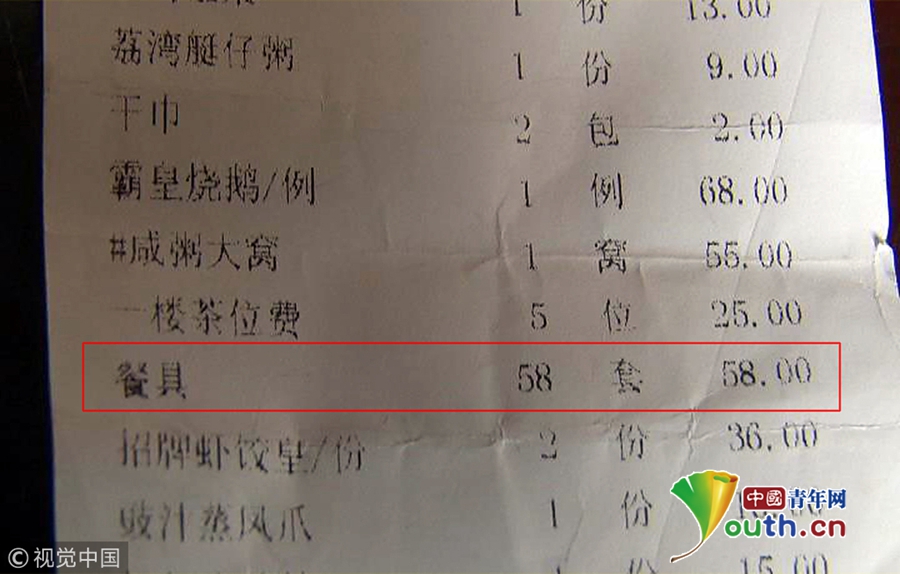 1 份 13.00
荔湾艇仔粥 1 份 9.00
干巾 2 包 2.00
霸皇烧鹅/例 1 例 68.00
#咸粥大窝 1 窝 55.00
一楼茶位费 5 位 25.00
餐具 58 套 58.00
招牌虾饺皇/份 2 份 36.00
豉汁蒸凤爪 1 份
中國青年网
Youth.cn
15.00
© 视觉中国